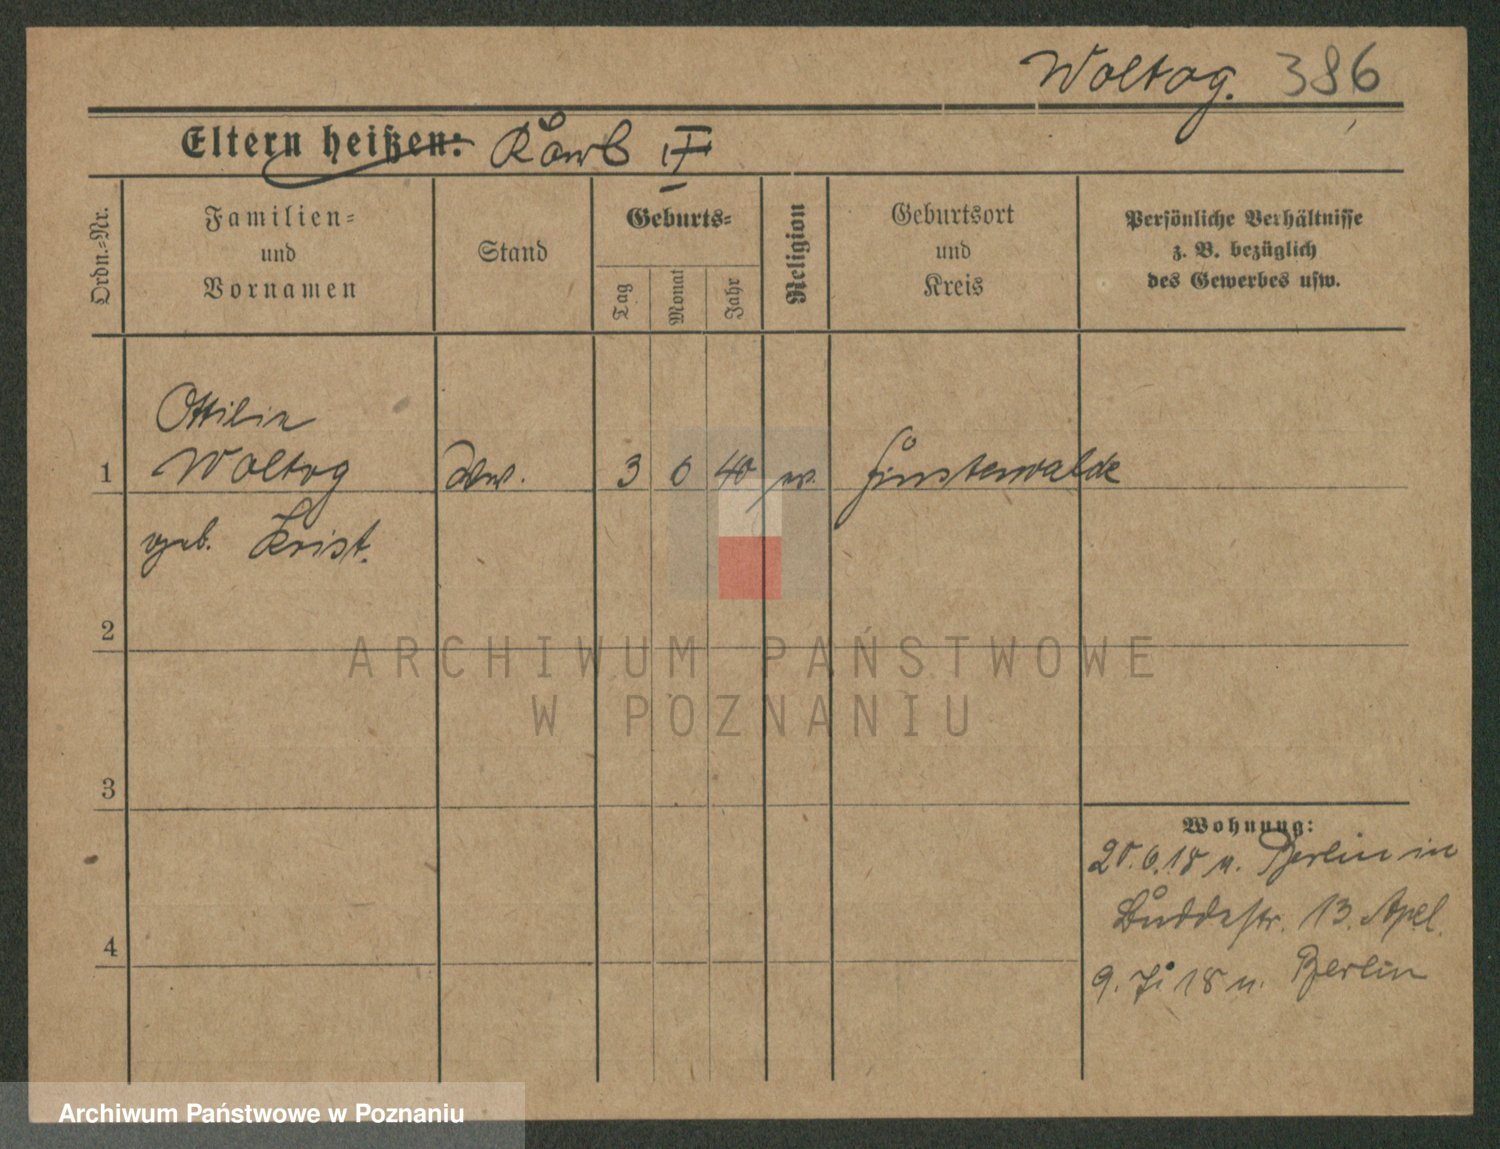 Woltog. 386
Eltern heißen:
Ordn.=Nr.
Familien=
und
Vornamen
Stand
Geburts=
Tag
Monat
Jahr
Religion
Geburtsort
und
Kreis
Persönliche Verhältnisse
z. B. bezüglich
des Gewerbes usw.
Ottilie
Woltog
1
Ww. 3 6 40 ev. Finsterwalde
geb. Krist.
2
3
4
Wohnung:
20.6.18 n. Berlin in
Buddestr. 13.
9. 18 n. Berlin
ARCHIWUM PAŃSTWOWE
W POZNANIU
Archiwum Państwowe w Poznaniu